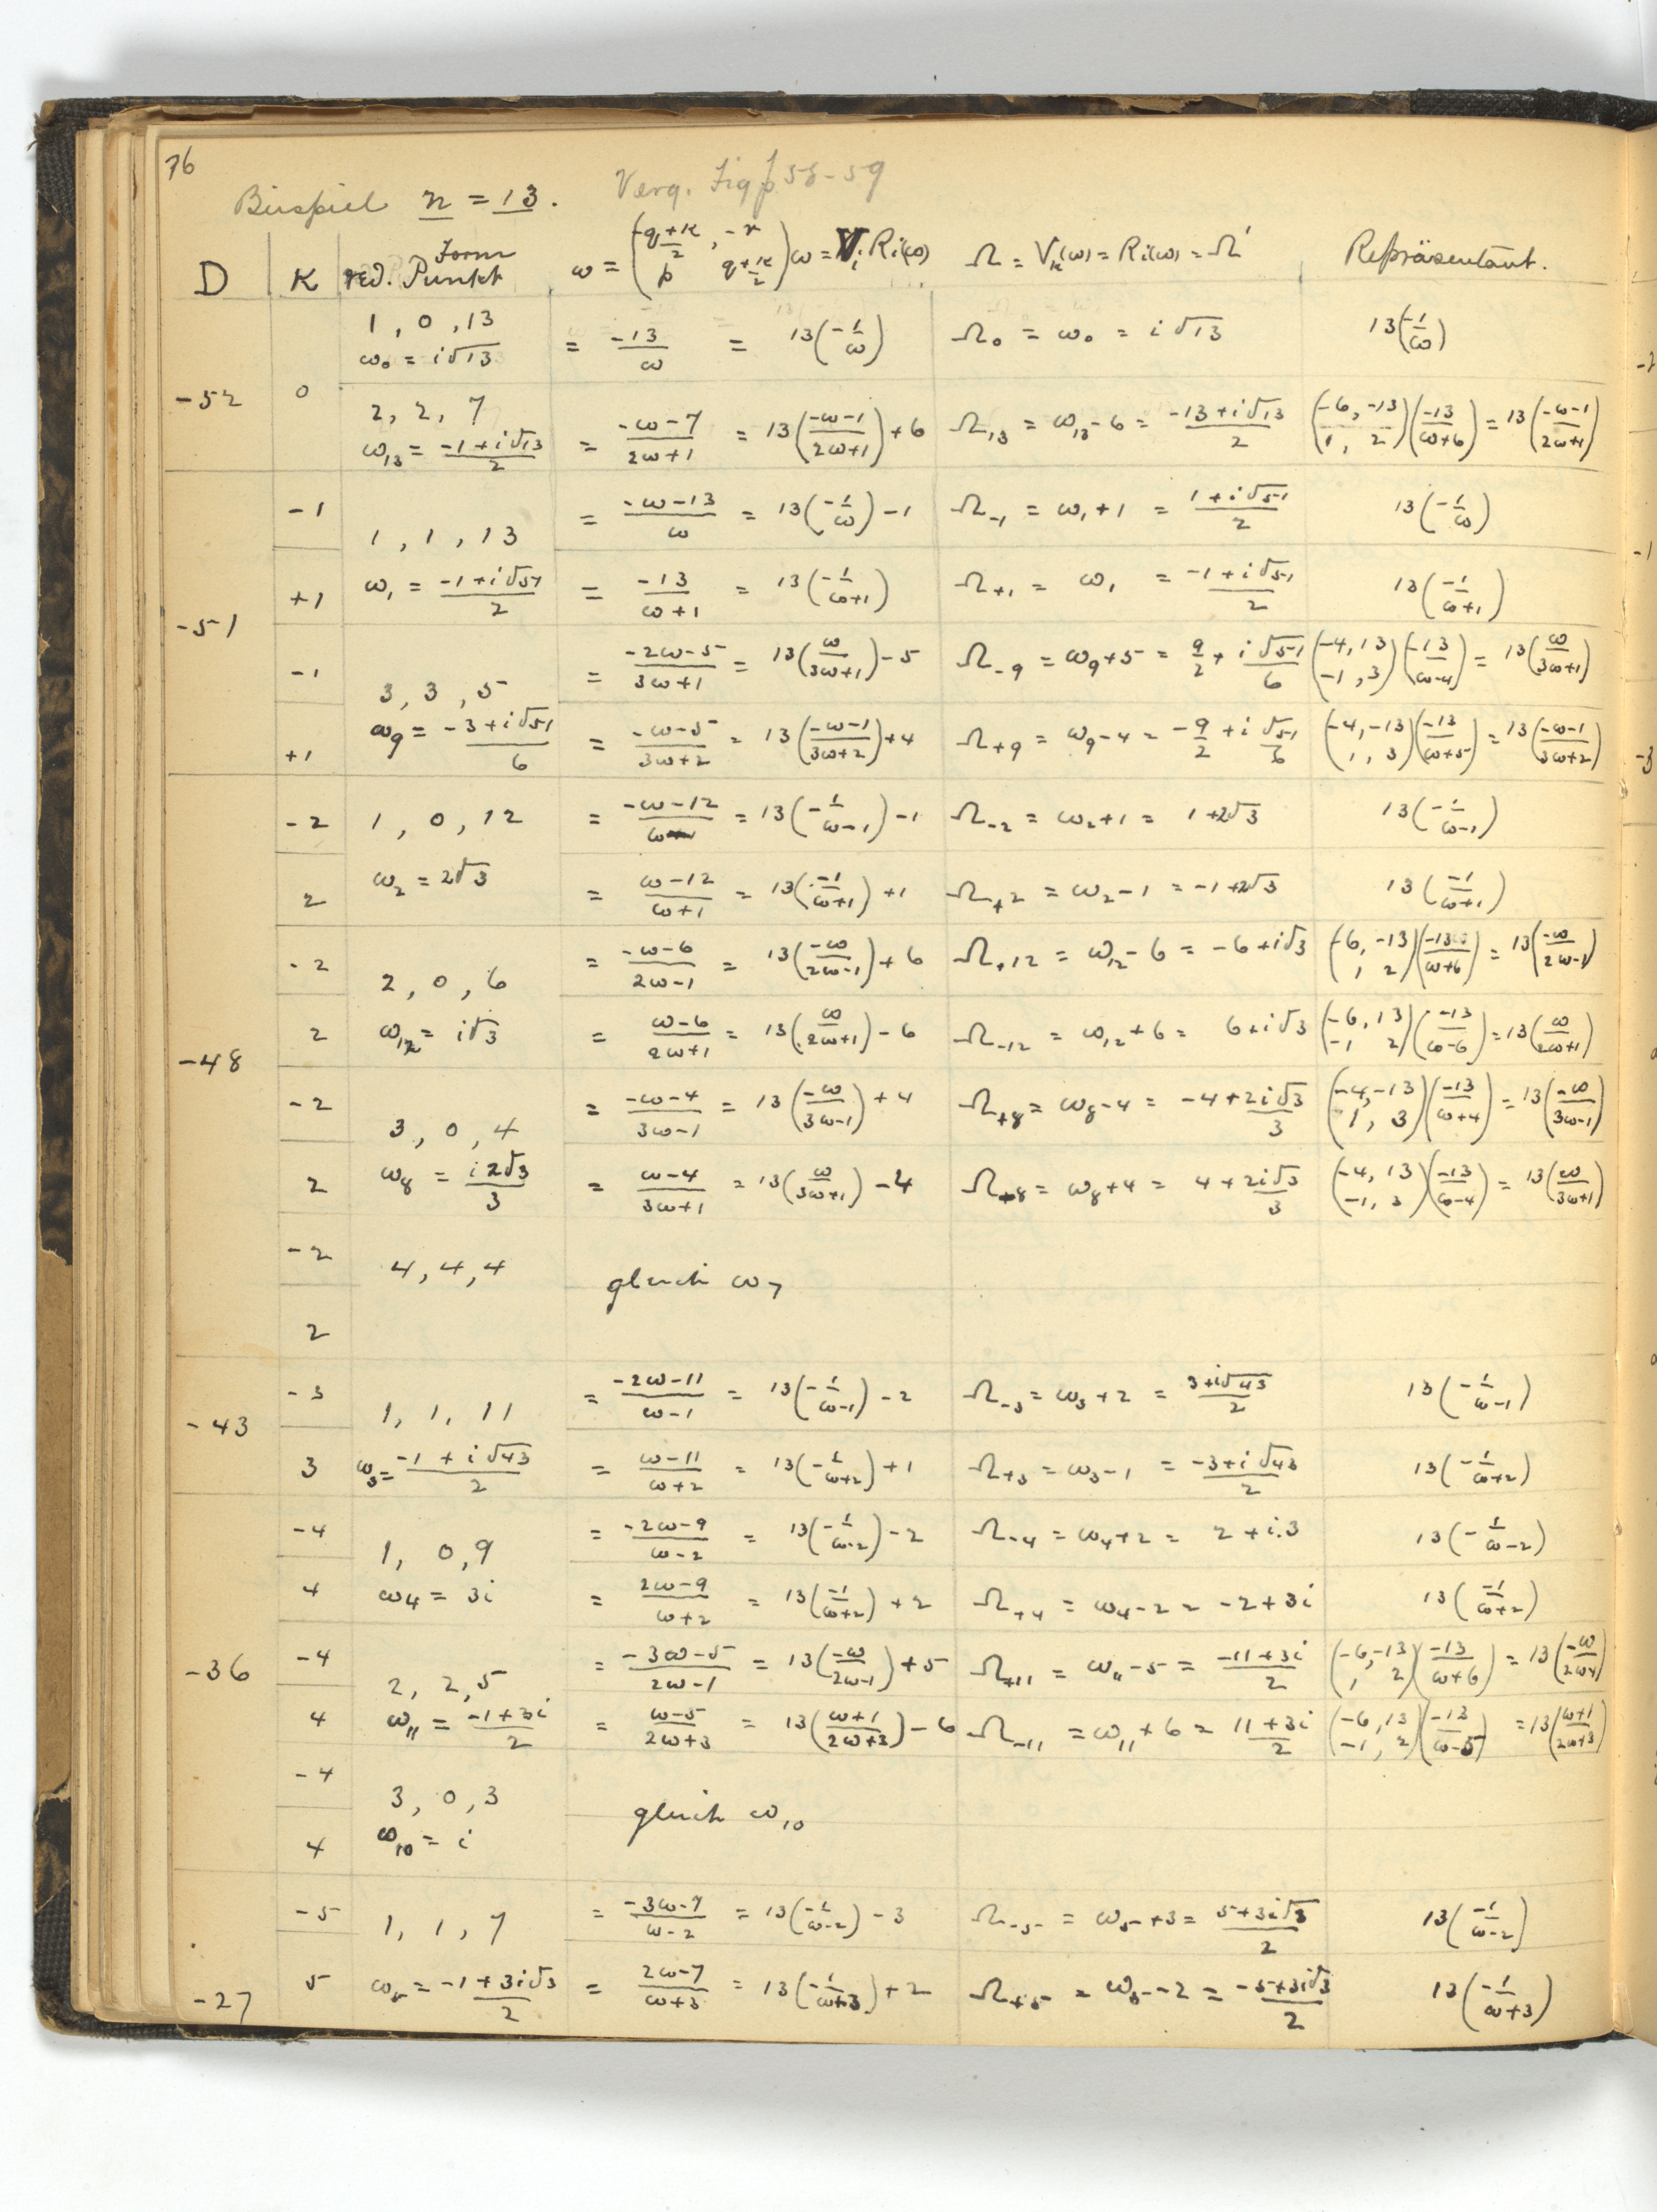 76
Beispiel n = 13. Verg. Fig p 58-59
D | K | red. Form Punkt | ω = (-q+κ/2, -r / p, q+κ/2) ω = V_i R_i(ω) | Ω = V_κ(ω) = R_i(ω) = Ω' | Repräsentant.
-52 | 0 | 1, 0, 13 ω₀ = i√13 | = -13/ω = 13(-1/ω) | Ω₀ = ω₀ = i√13 | 13(-1/ω)
2, 2, 7 ω₁₃ = (-1+i√13)/2 | = (-ω-7)/(2ω+1) = 13((-ω-1)/(2ω+1)) + 6 | Ω₁₃ = ω₁₃-6 = (-13+i√13)/2 | (-6, -13 / 1, 2)(-13/(ω+6)) = 13((-ω-1)/(2ω+1))
-51 | -1 | 1, 1, 13 | = (-ω-13)/ω = 13(-1/ω) - 1 | Ω₋₁ = ω₁+1 = (1+i√51)/2 | 13(-1/ω)
+1 | ω₁ = (-1+i√51)/2 | = -13/(ω+1) = 13(-1/(ω+1)) | Ω₊₁ = ω₁ = (-1+i√51)/2 | 13(-1/(ω+1))
-1 | 3, 3, 5 | = (-2ω-5)/(3ω+1) = 13(ω/(3ω+1)) - 5 | Ω₋₉ = ω₉+5 = 9/2 + i√51/6 | (-4, 13 / -1, 3)(-13/(ω-4)) = 13(ω/(3ω+1))
+1 | ω₉ = (-3+i√51)/6 | = (-ω-5)/(3ω+2) = 13((-ω-1)/(3ω+2)) + 4 | Ω₊₉ = ω₉-4 = -9/2 + i√51/6 | (-4, -13 / 1, 3)(-13/(ω+5)) = 13((-ω-1)/(3ω+2))
-48 | -2 | 1, 0, 12 | = (-ω-12)/(ω-1) = 13(-1/(ω-1)) - 1 | Ω₋₂ = ω₂+1 = 1+2√3 | 13(-1/(ω-1))
2 | ω₂ = 2√3 | = (ω-12)/(ω+1) = 13(-1/(ω+1)) + 1 | Ω₊₂ = ω₂-1 = -1+2√3 | 13(-1/(ω+1))
-2 | 2, 0, 6 | = (-ω-6)/(2ω-1) = 13(-ω/(2ω-1)) + 6 | Ω₊₁₂ = ω₁₂-6 = -6+i√3 | (-6, -13 / 1, 2)(-13/(ω+6)) = 13(-ω/(2ω-1))
2 | ω₁₂ = i√3 | = (ω-6)/(2ω+1) = 13(ω/(2ω+1)) - 6 | Ω₋₁₂ = ω₁₂+6 = 6+i√3 | (-6, 13 / -1, 2)(-13/(ω-6)) = 13(ω/(2ω+1))
-2 | 3, 0, 4 | = (-ω-4)/(3ω-1) = 13(-ω/(3ω-1)) + 4 | Ω₊₈ = ω₈-4 = -4+2i√3/3 | (-4, -13 / 1, 3)(-13/(ω+4)) = 13(-ω/(3ω-1))
2 | ω₈ = i2√3/3 | = (ω-4)/(3ω+1) = 13(ω/(3ω+1)) - 4 | Ω₋₈ = ω₈+4 = 4+2i√3/3 | (-4, 13 / -1, 3)(-13/(ω-4)) = 13(ω/(3ω+1))
-2 | 4, 4, 4 | gleich ω₇
2
-43 | -3 | 1, 1, 11 | = (-2ω-11)/(ω-1) = 13(-1/(ω-1)) - 2 | Ω₋₃ = ω₃+2 = (3+i√43)/2 | 13(-1/(ω-1))
3 | ω₃ = (-1+i√43)/2 | = (ω-11)/(ω+2) = 13(-1/(ω+2)) + 1 | Ω₊₃ = ω₃-1 = (-3+i√43)/2 | 13(-1/(ω+2))
-36 | -4 | 1, 0, 9 | = (-2ω-9)/(ω-2) = 13(-1/(ω-2)) - 2 | Ω₋₄ = ω₄+2 = 2+i.3 | 13(-1/(ω-2))
4 | ω₄ = 3i | = (2ω-9)/(ω+2) = 13(-1/(ω+2)) + 2 | Ω₊₄ = ω₄-2 = -2+3i | 13(-1/(ω+2))
-4 | 2, 2, 5 | = (-3ω-5)/(2ω-1) = 13(-ω/(2ω-1)) + 5 | Ω₊₁₁ = ω₁₁-5 = (-11+3i)/2 | (-6, -13 / 1, 2)(-13/(ω+6)) = 13(-ω/(2ω-1))
4 | ω₁₁ = (-1+3i)/2 | = (ω-5)/(2ω+3) = 13((ω+1)/(2ω+3)) - 6 | Ω₋₁₁ = ω₁₁+6 = (11+3i)/2 | (-6, 13 / -1, 2)(-13/(ω-5)) = 13((ω+1)/(2ω+3))
-4 | 3, 0, 3 | gleich ω₁₀
4 | ω₁₀ = i
-27 | -5 | 1, 1, 7 | = (-3ω-7)/(ω-2) = 13(-1/(ω-2)) - 3 | Ω₋₅ = ω₅+3 = (5+3i√3)/2 | 13(-1/(ω-2))
5 | ω₅ = (-1+3i√3)/2 | = (2ω-7)/(ω+3) = 13(-1/(ω+3)) + 2 | Ω₊₅ = ω₅-2 = (-5+3i√3)/2 | 13(-1/(ω+3))